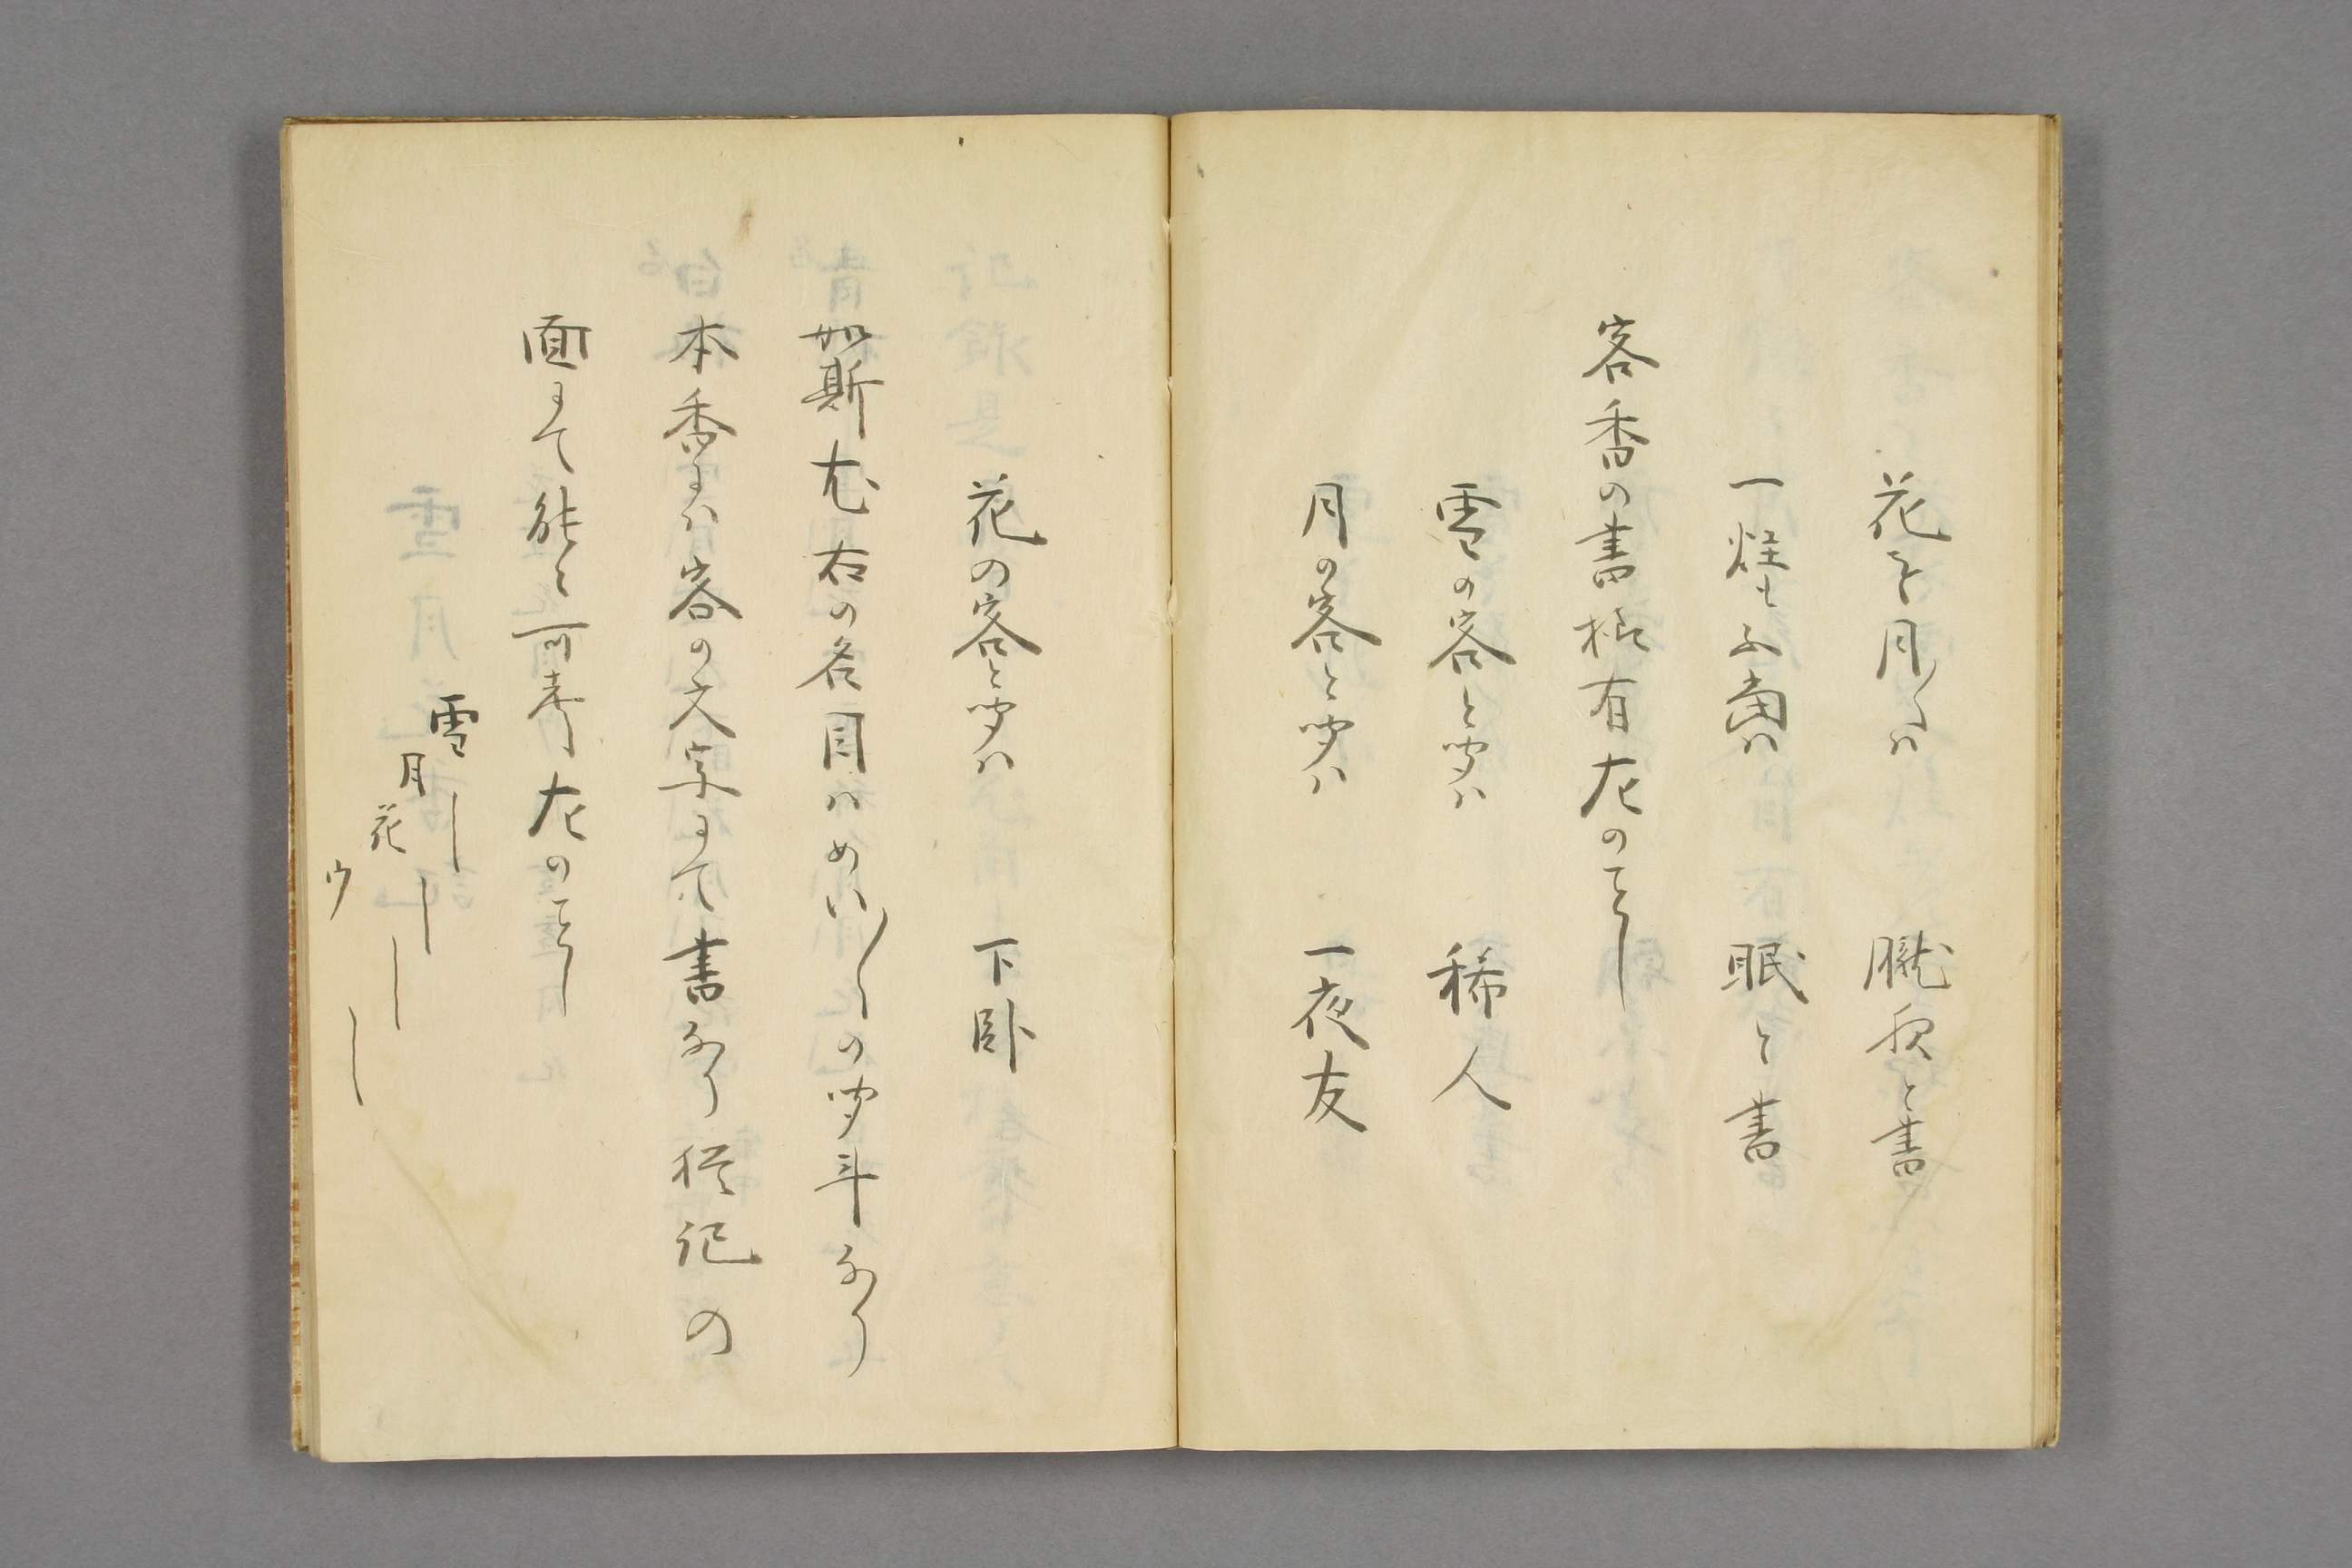 花を月〳〵ハ　朧夜と書
一炷も不当ハ　眠と書
客香の書様有左のことし
雪の客と聞ハ　稀人
月の客と聞ハ　一夜友
花の客と聞ハ　下臥
如斯尤右の名目ハめい〳〵の聞斗なり
本香にハ客の文字にて書なり猶記の
面にて能々可考左のことし
雪
月
花
ウ